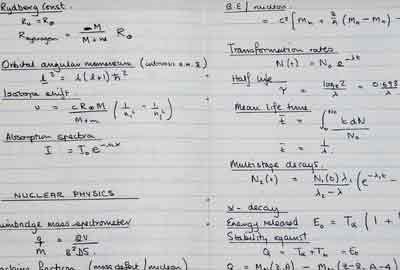 Rydberg Const.
R∞ = R∞
R hydrogen = M / M+m R∞
Orbital angular momentum
l² = l(l+1) ħ²
Isotope shift.
ν = c R∞ M / M+m ( 1/n₁² - 1/n₂² )
Absorption spectra
I = I₀ e^-nx
NUCLEAR PHYSICS
mass spectrometer
q/M = 2V / B²DS
fraction (mass defect / nucleon)
B.E / nucleon
= c² [ Mn + Z/A (MH - Mn) -
Transformation rates
N(t) = N₀ e^-λt
Half life
τ = loge2 / λ = 0.693
Mean life time
t̄ = ∫ t dN / N₀
t̄ = 1/λ
Multistage decays.
N₂(t) = N₁(0) λ₁ / λ₂ - λ₁ ( e^-λ₁t -
α - decay
Energy released E₀ = Tα ( 1 +
Stability against
Q = Tα + Tb = E₀
Q = M (Z,A) - M (Z-2, A-4)